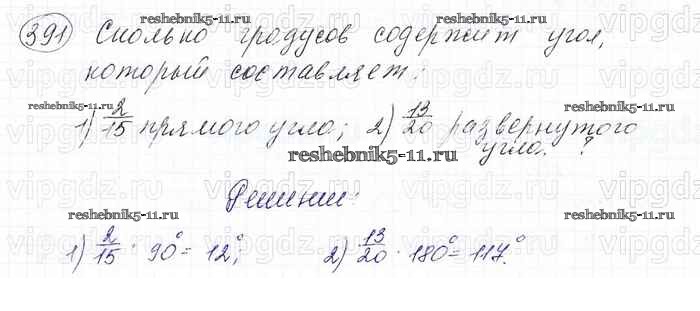 reshebnik5-11.ru
391 Сколько градусов содержит угол,
который составляет:
reshebnik5-11.ru reshebnik5-11.ru
1) 2/15 прямого угла; 2) 13/20 развернутого
угла. ?
reshebnik5-11.ru
Решение:
reshebnik5-11.ru reshebnik5-11.ru
1) 2/15 · 90° = 12°; 2) 13/20 · 180° = 117°.
reshebnik5-11.ru